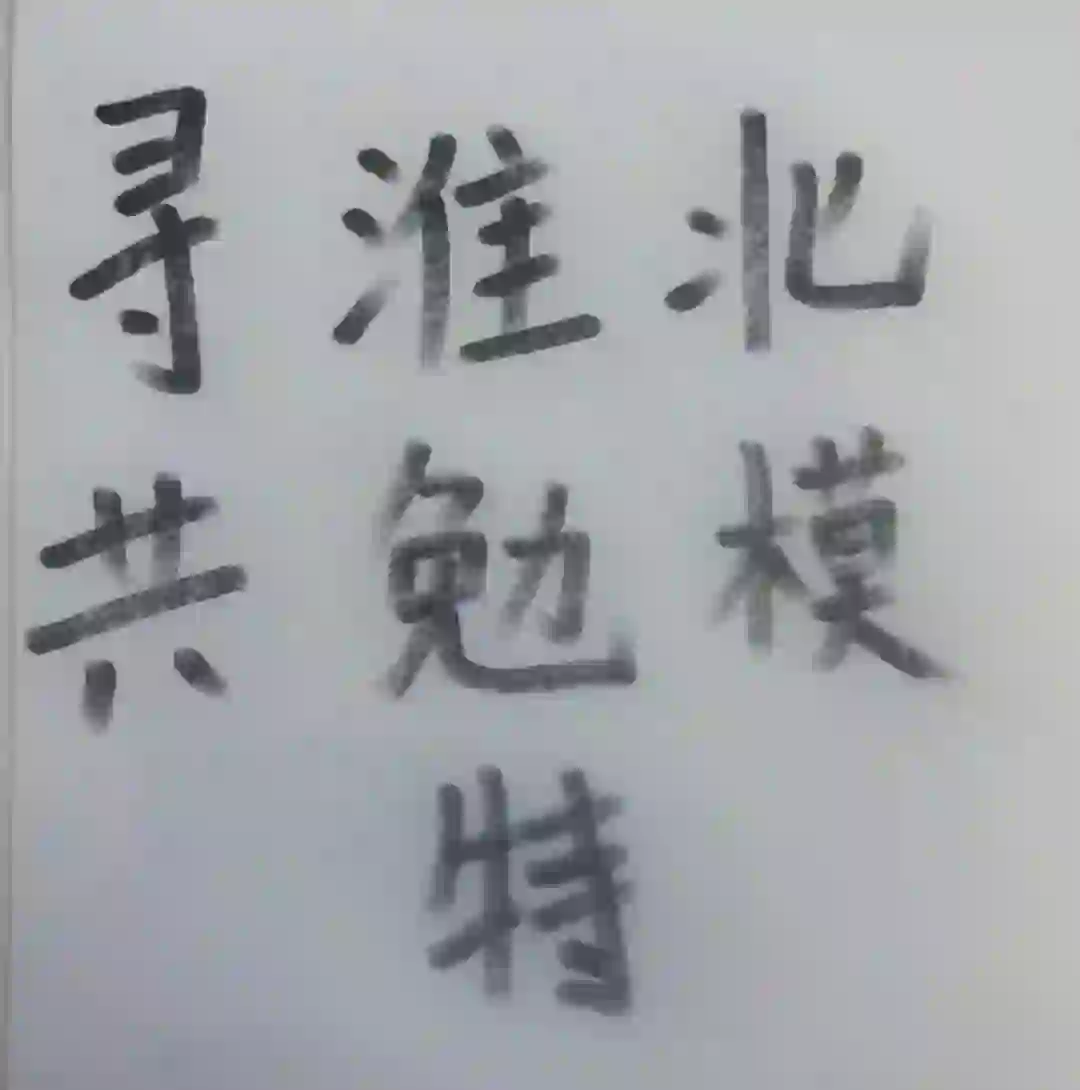 寻淮北
共勉模
特